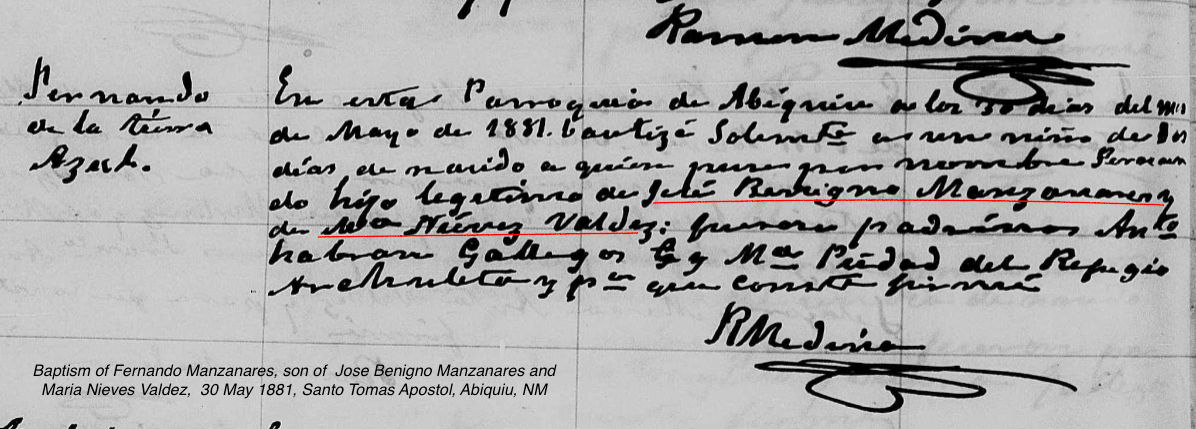 Ramon Medina
Fernando
de la tierra
Azul.
En esta Parroquia de Abiquiu a los 30 dias del mes
de Mayo de 1881. bautizé Solemte a un niño de dos
dias de nacido a quien puse por nombre Fernan
do hijo legitimo de José Benigno Manzanares y
de Ma Niévez Valdez: fueron padrinos Anto
Gallegos y Ma Piedad del Refugio
Archuleta y pa que conste firmé
RMedina
Baptism of Fernando Manzanares, son of Jose Benigno Manzanares and
Maria Nieves Valdez, 30 May 1881, Santo Tomas Apostol, Abiquiu, NM